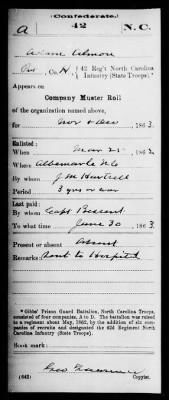 (Confederate.)
a 42 N.C.
Adam Almon
Pvt, Co. H, 42 Reg't North Carolina
Infantry (State Troops).*
Appears on
Company Muster Roll
of the organization named above,
for Nov & Dec, 1863.
Enlisted:
When Mar 25, 1862
Where Albemarle N.C.
By whom J. M. Hartsell
Period 3 yrs or war
Last paid:
By whom Capt
To what time June 30, 1863.
Present or absent Absent
Remarks: Sent to Hospital
* Gibbs' Prison Guard Battalion, North Carolina Troops,
consisted of four companies, A to D. The battalion was raised
to a regiment about May, 1862, by the addition of six com-
panies of recruits and designated the 42d Regiment North
Carolina Infantry (State Troops).
Book mark:
(642)
Copyist.